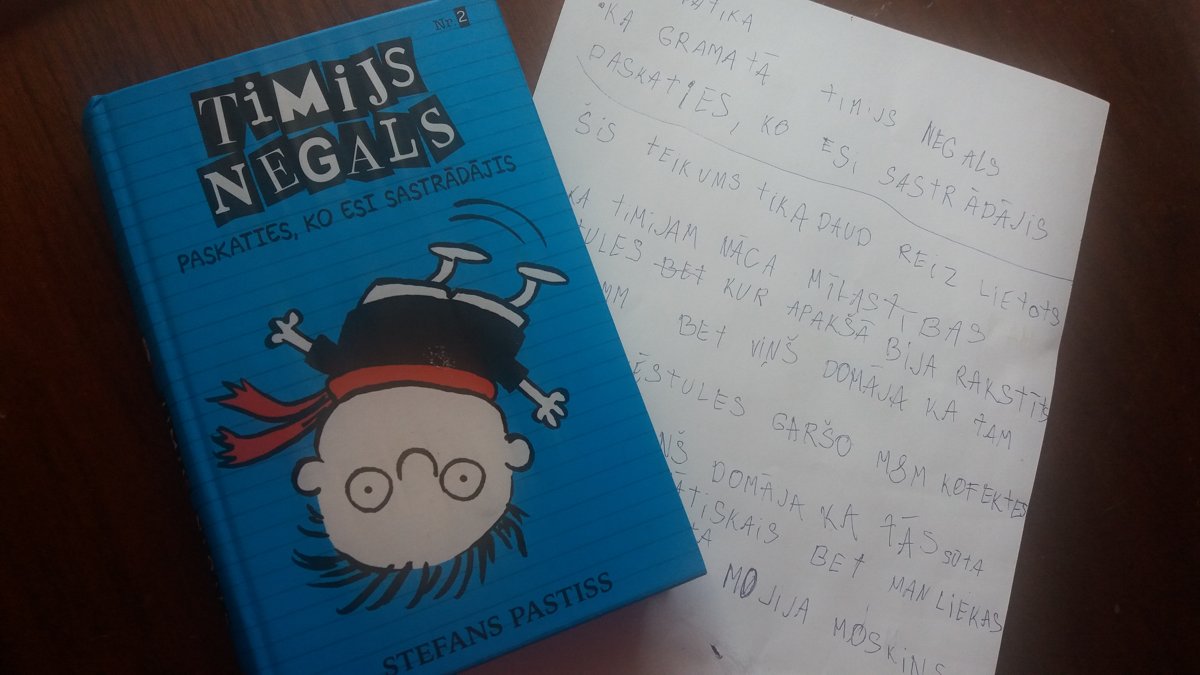 Nr 2
TiMiJS
NEGALS
PASKATIES, KO ESI SASTRĀDĀJIS
STEFANS PASTISS
KA GRAMATĀ TIMIJS NEGALS
PASKATIES, KO ESI SASTRĀDĀJIS
ŠIS TEIKUMS TIKA DAUD REIZ LIETOTS
KA TIMIJAM NĀCA MĪLASTĪBAS
TULES BET KUR APAKŠĀ BIJA RAKSTĪTS
MM BET VIŅŠ DOMĀJA KA TAM
ĒSTULES GARŠO M&M KOFEKTES
ŅŠ DOMĀJA KA TĀS SŪTA
ĀTISKAIS BET MAN LIEKAS
TA MOJIJA MOSKINS